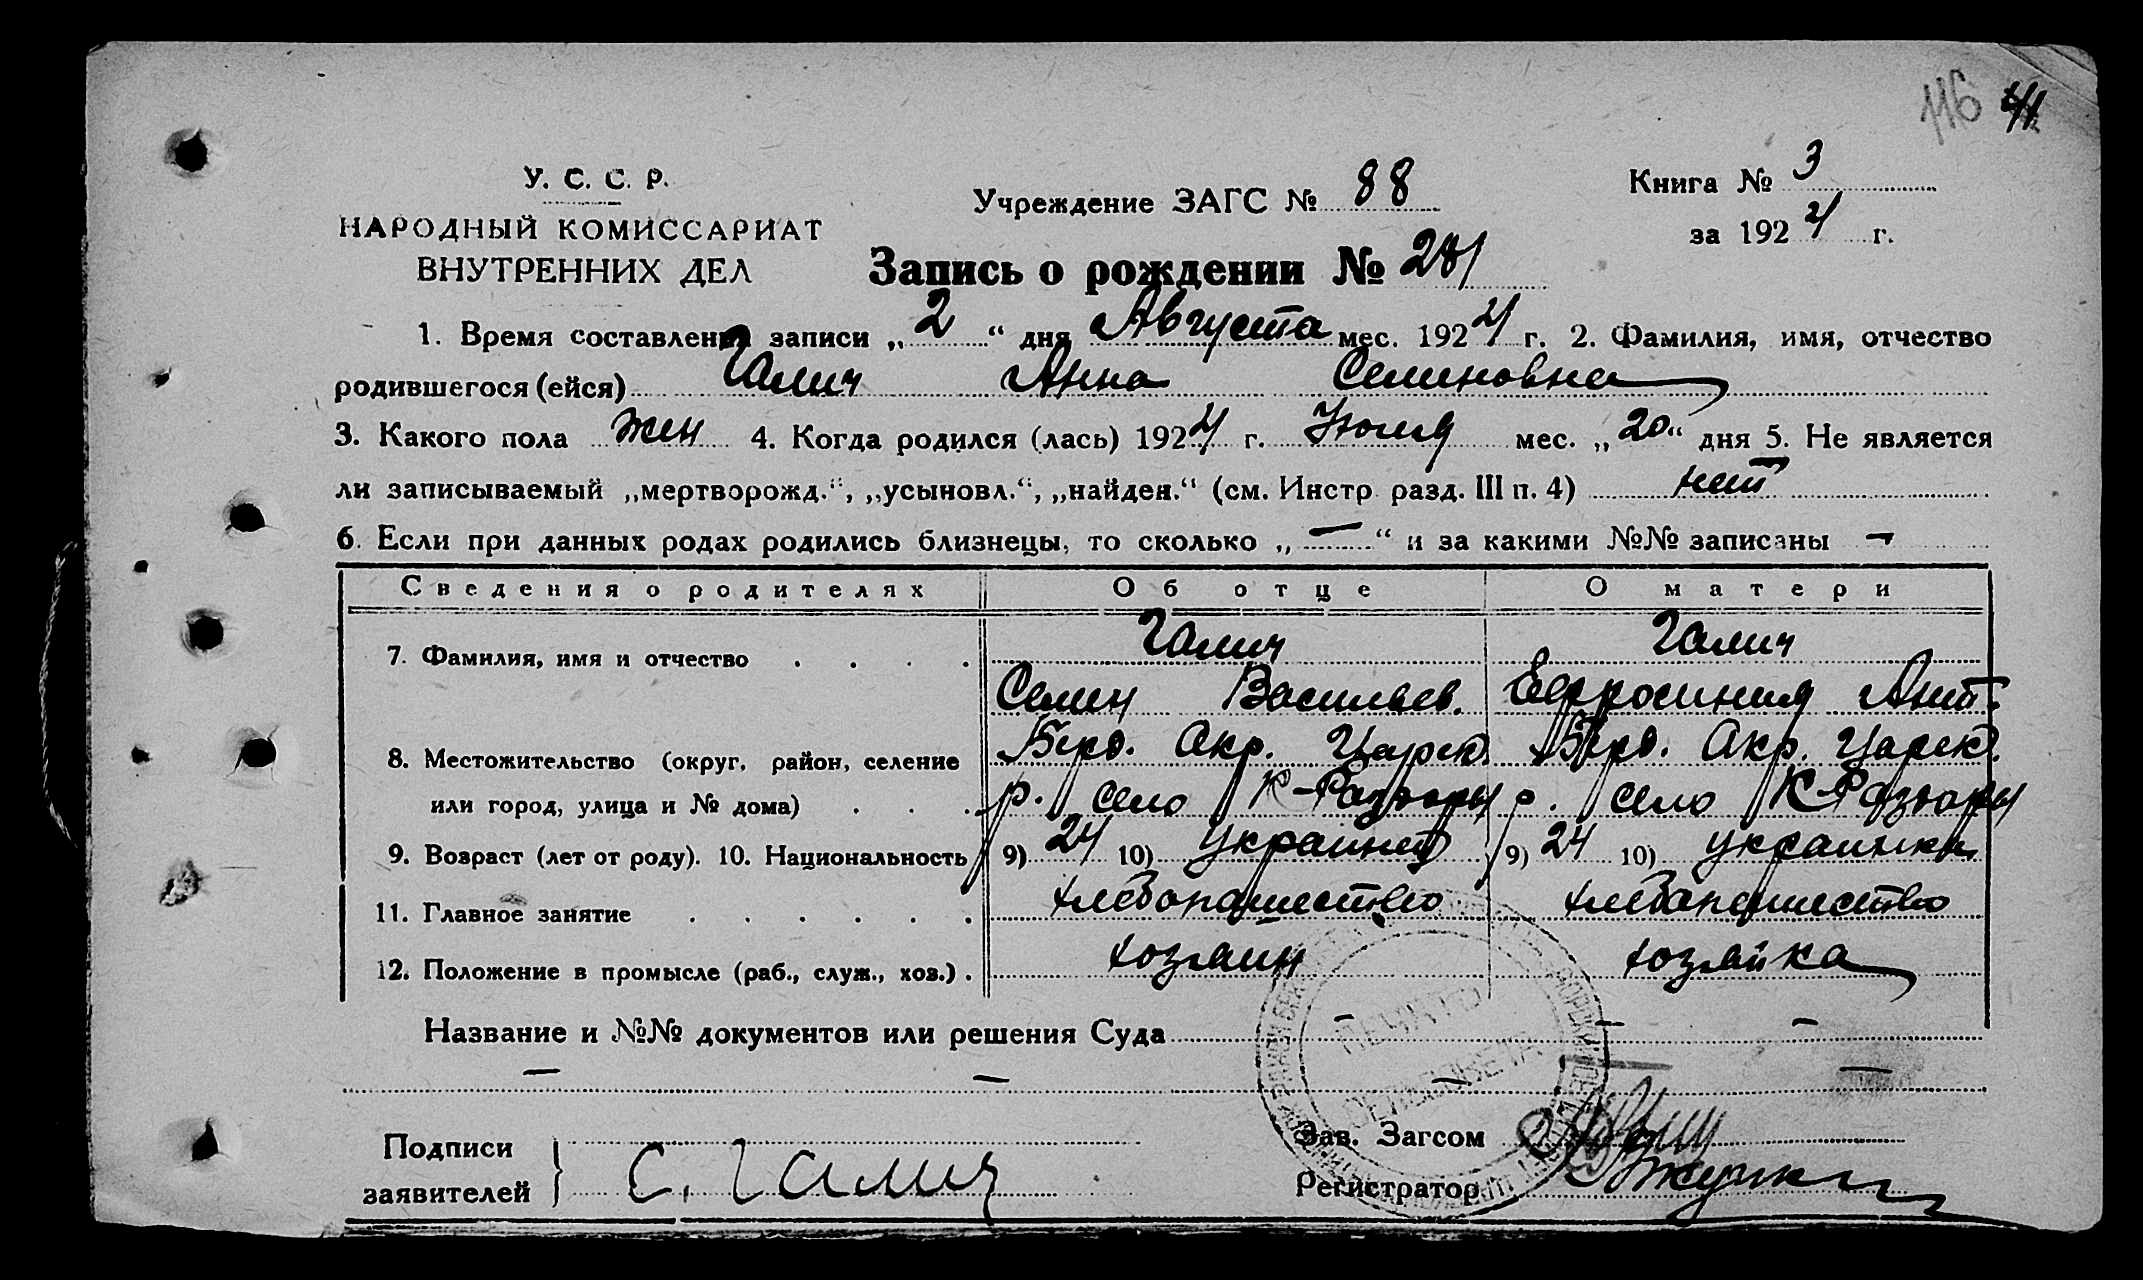 116 41
У. С. С. Р.
НАРОДНЫЙ КОМИССАРИАТ
ВНУТРЕННИХ ДЕЛ
Учреждение ЗАГС № 88
Книга № 3
за 1924 г.
Запись о рождении № 281
1. Время составления записи „2“ дня Августа мес. 1924 г. 2. Фамилия, имя, отчество
родившегося (ейся) Галич Анна Семеновна
3. Какого пола жен 4. Когда родился (лась) 1924 г. Июля мес. „20“ дня 5. Не является
ли записываемый „мертворожд.“, „усыновл.“, „найден.“ (см. Инстр. разд. III п. 4) нет
6. Если при данных родах родились близнецы, то сколько „—“ и за какими №№ записаны —
Сведения о родителях Об отце О матери
7. Фамилия, имя и отчество . . . . Галич Галич
Семен Васильев. Ефросиния Ант.
8. Местожительство (округ, район, селение Берд. Окр. Царек. Берд. Окр. Царек.
или город, улица и № дома) . . . р. село К-Раздоры р. село К-Раздоры
9. Возраст (лет от роду). 10. Национальность 9) 24 10) украинец 9) 24 10) украинка
11. Главное занятие . . . . . . хлебопашество хлебопашество
12. Положение в промысле (раб., служ., хоз.) . хозяин хозяйка
Название и №№ документов или решения Суда — — —
— — — —
Подписи
заявителей } С. Галич
Зав. Загсом
Регистратор
ПЕЧАТЬ
СЕЛЬСОВЕТА